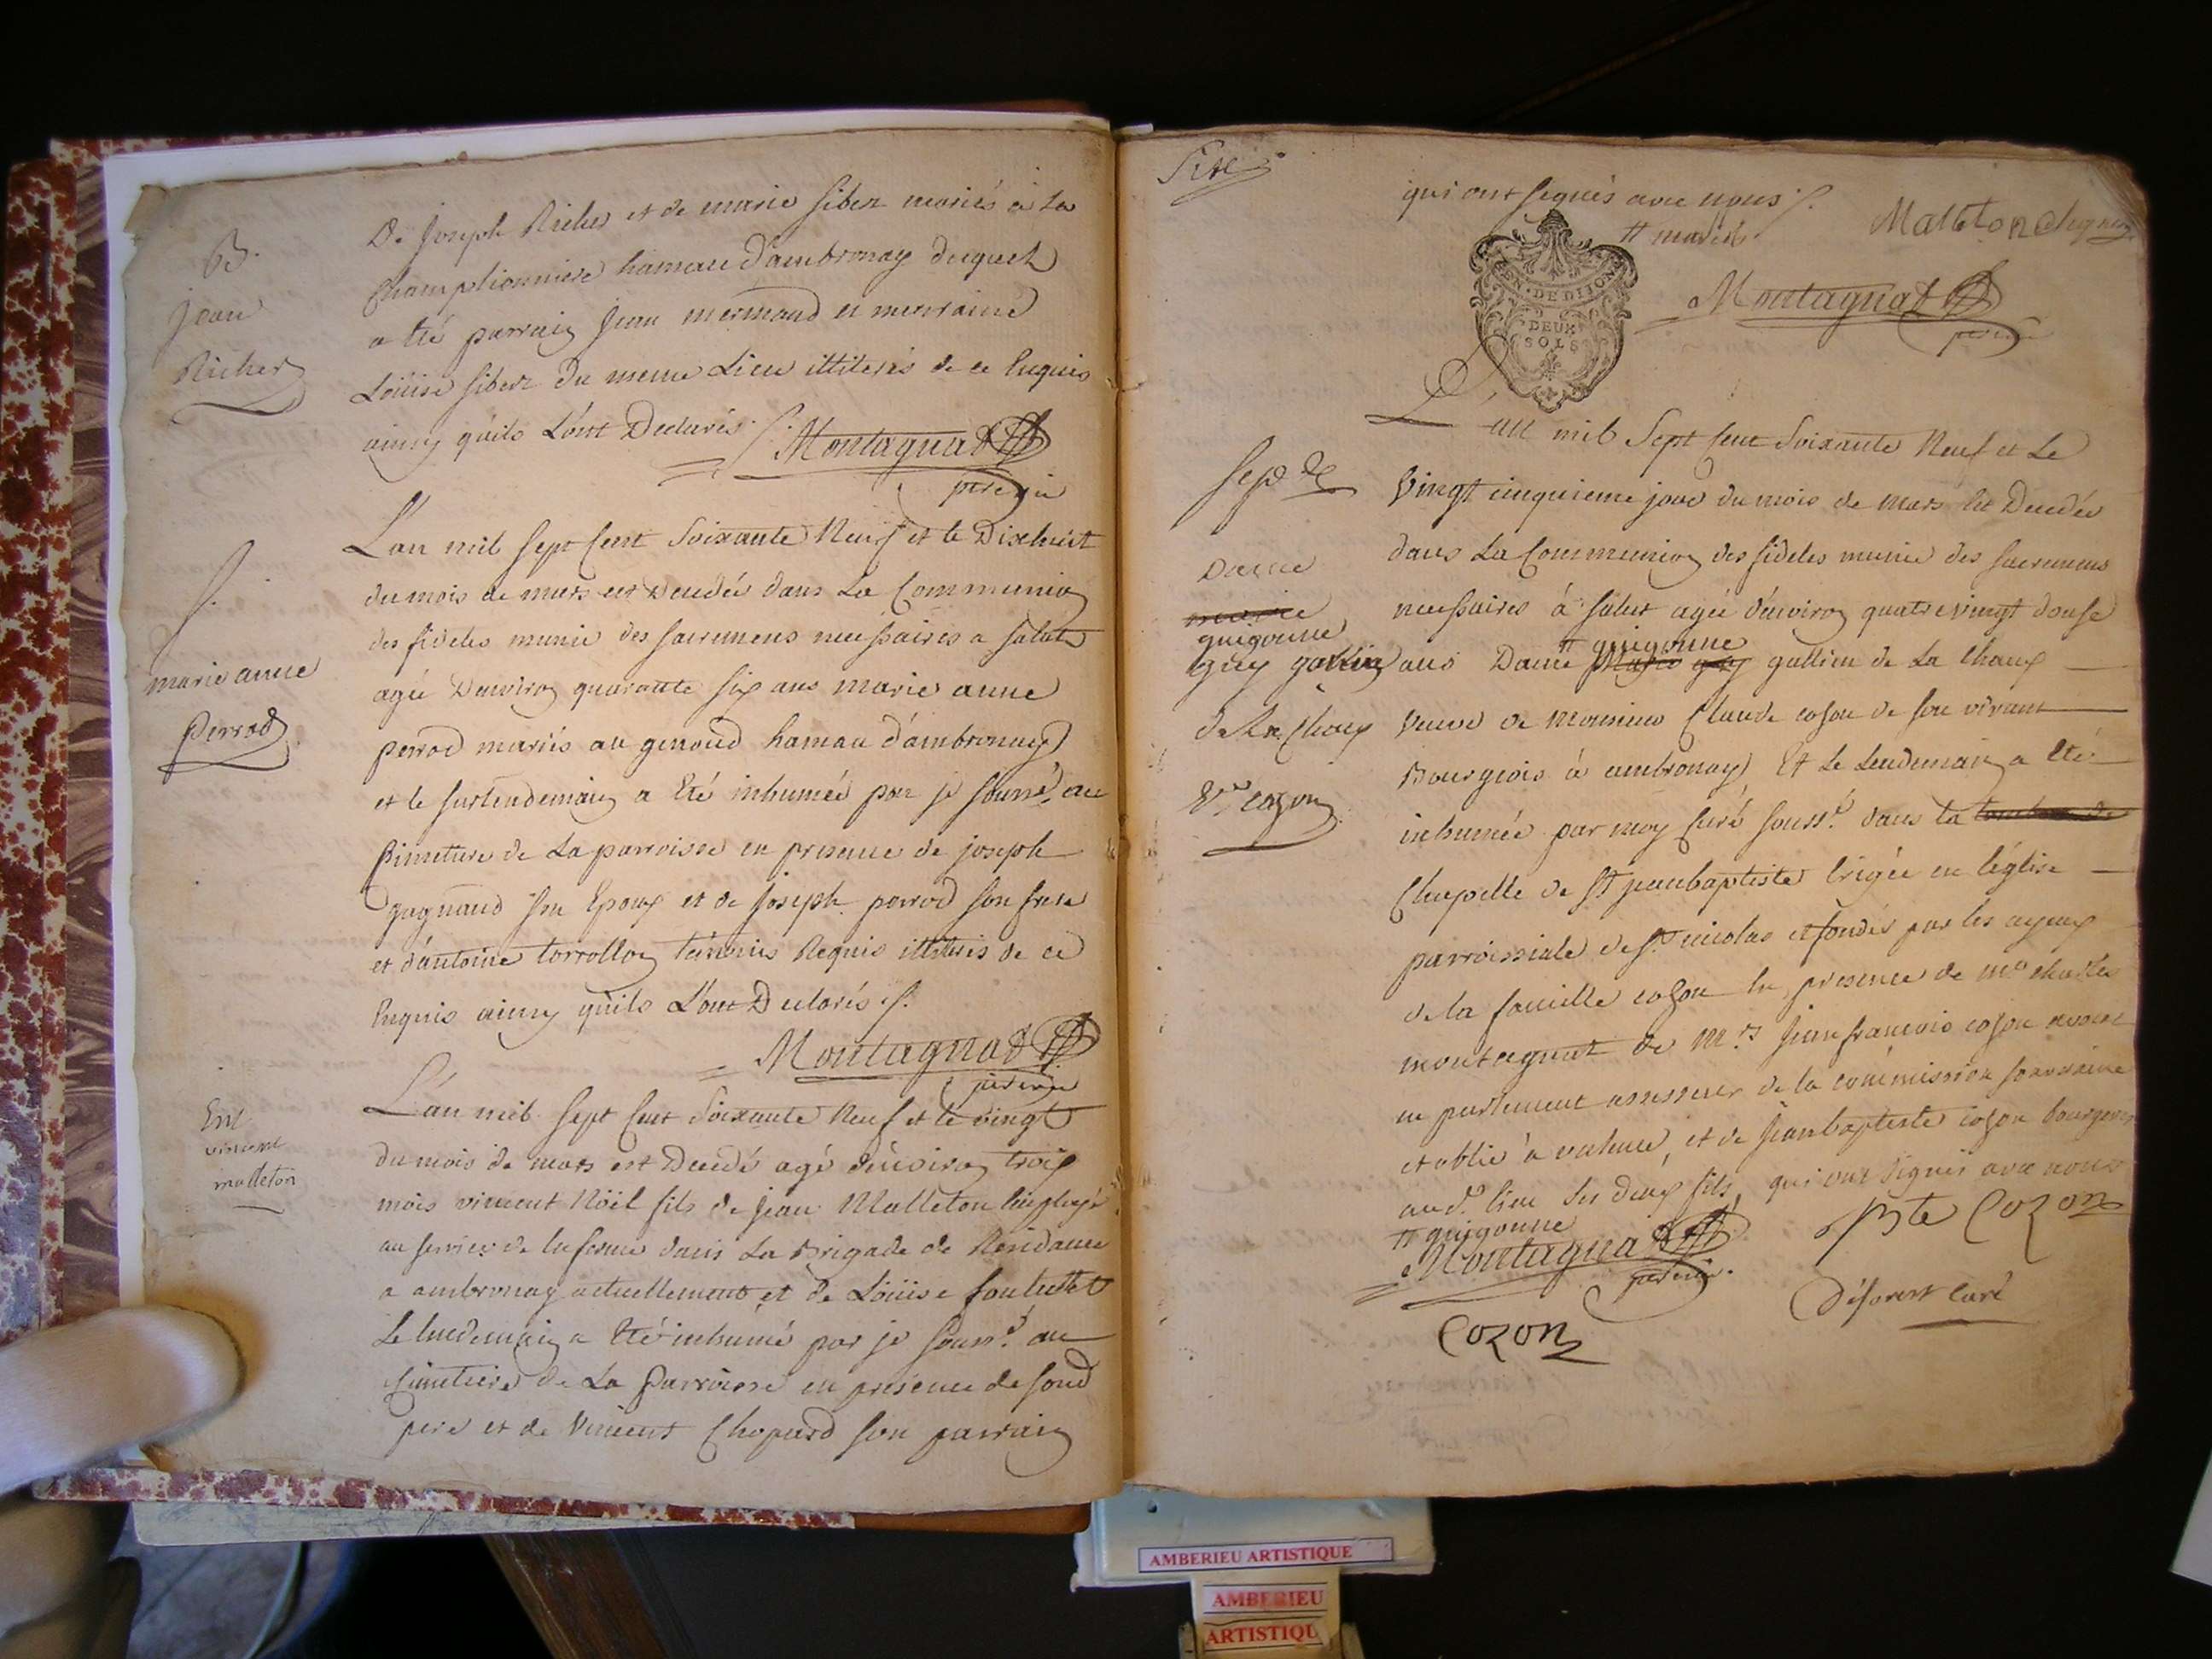 B.
jean
Richer
De Joseph Richer et de marie siber mariés à la
Championniere hameau d'ambronay duquel
a été parrain Jean mermand et marraine
Loüise siber du meme Lieu illiterés de ce Enquis
ainsy quils L'ont Declarés ./.
Montagnat
S.
marie anne
perrod
L'an mil sept Cent Soixante Neuf et le Dixhuit
du mois de mars est Decedée dans La Communion
des fideles munie des sacremens necessaires a salut
agée Denviron quarante six ans marie anne
perrod mariés au genoud hameau d'ambronay
et le surlendemain a Eté inhumée par je soussé. au
Cimetiere de La parroisse en presence de joseph
gagnaud son Epoux et de joseph perrod son frere
et d'antoine torrollon témoins Requis illiterés de ce
Enquis ainsy quils L'ont Declarés ./.
Montagnat
Ent
vincent
malleton
L'an mil sept Cent Soixante Neuf et le vingt
du mois de mars est Decedé agé dénviron trois
mois vincent Nöel fils de jean Malleton Employé
au service de la ferme dans La Brigade de Residance
a ambronay actuellement et de Loüise
Le lendemain a Eté inhumé par je souss.é au
Cimetiere de La Parroisse en presence de soud
pere et de Vincent Chopard son parrain
qui ont signés avec nous ./.
Malleton
Montagnat
GEN. DE DIJON
DEUX
SOLS
L'an mil Sept Cent Soixante Neuf et Le
Vingt cinquieme jour du mois de mars est Decedée
dans La Communion des fideles munie des sacremens
necessaires à salut agée d'environ quatre vingt douse
Dame
marie
guigonne
guy gallien
de La Chaux
Ve. cozon
guigonne
ans Dame Marie guy gallien de La Chaux
Veuve de Monsieur Claude cozon de son vivant
Bourgeois à ambronay Et Le Lendemain a Eté
inhumée par moy Curé souss.é dans la tombeau de
Chapelle de St jeanbaptiste Erigée en léglise
parroissiale de St. nicolas et fondée par les ayeux
de la famille cozon En presence de me charles
montagnat de Mrs. jean francois cozon avocat
en parlement assesseur de la commission souveraine
etablie à valence, et de jeanbaptiste cozon bourgeois
aud.t lieu ses deux fils, qui ont signés avec nous
guigonne
Montagnat
Bte Cozon
Cozon
Déforest Curé
AMBERIEU ARTISTIQUE
AMBERIEU
ARTISTIQU